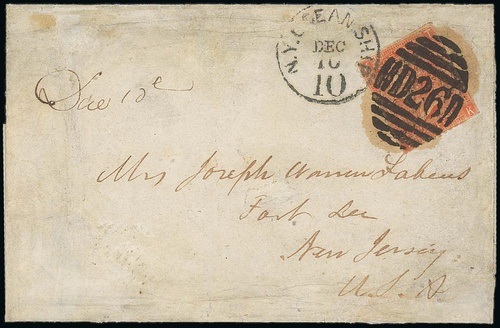 N.Y. OCEAN SHIP
DEC
10
10
D26
Due 10c
Mrs Joseph Warren Fabens
Fort Lee
New Jersey
U.S.A
K